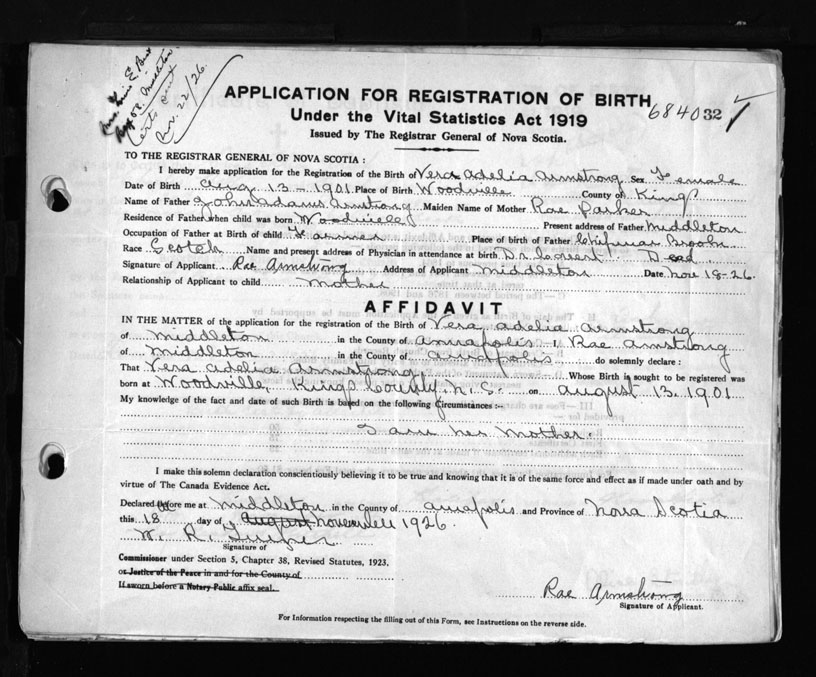 Box 52. Middleton
Certs sent
Nov. 22/26.
APPLICATION FOR REGISTRATION OF BIRTH
684032
Under the Vital Statistics Act 1919
Issued by The Registrar General of Nova Scotia.
TO THE REGISTRAR GENERAL OF NOVA SCOTIA :
I hereby make application for the Registration of the Birth of Vera Adelia Armstrong Sex Female
Date of Birth Aug 13 - 1901 Place of Birth Woodville County of Kings
Name of Father John Adams Armstrong Maiden Name of Mother Rae Parker
Residence of Father when child was born Woodville Present address of Father Middleton
Occupation of Father at Birth of child Farmer Place of birth of Father Chipman Brook
Race Scotch Name and present address of Physician in attendance at birth Dr. Dead
Signature of Applicant Rae Armstrong Address of Applicant Middleton Date Nov 18-26.
Relationship of Applicant to child Mother
AFFIDAVIT
IN THE MATTER of the application for the registration of the Birth of Vera Adelia Armstrong
of Middleton in the County of Annapolis I Rae Armstrong
of Middleton in the County of Annapolis do solemnly declare :
That Vera Adelia Armstrong Whose Birth is sought to be registered was
born at Woodville, Kings County, N.S. on August 13, 1901
My knowledge of the fact and date of such Birth is based on the following Circumstances :-
I am her Mother.
I make this solemn declaration conscientiously believing it to be true and knowing that it is of the same force and effect as if made under oath and by
virtue of The Canada Evidence Act.
Declared before me at Middleton in the County of Annapolis and Province of Nova Scotia
this 18 day of August November 1926.
W. R.
Signature of
Commissioner under Section 5, Chapter 38, Revised Statutes, 1923.
or Justice of the Peace in and for the County of
If sworn before a Notary Public affix seal.
Rae Armstrong
Signature of Applicant.
For Information respecting the filling out of this Form, see Instructions on the reverse side.